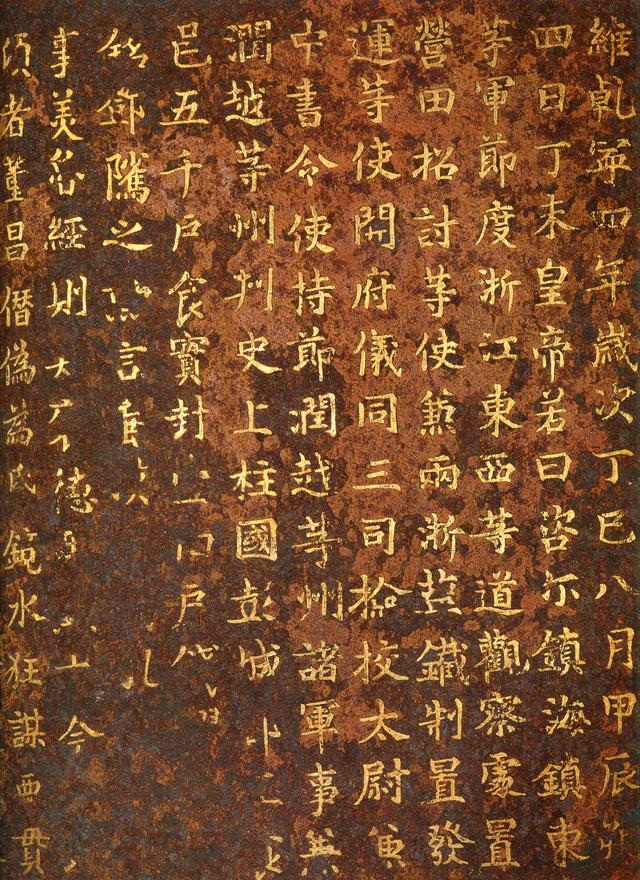 維乹寧四年歲次丁巳八月甲辰朔
四日丁未皇帝若曰咨尓鎮海鎮東
等軍節度浙江東西等道觀察處置
營田招討等使兼兩浙鹽鐵制置發
運等使開府儀同三司撿校太尉兼
中書令使持節潤越等州諸軍事兼
潤越等州刾史上柱國彭城
邑五千戶食實封戶
鄧騭之言垂
事美經則德今
者董昌僭偽為鏡水狂謀貫